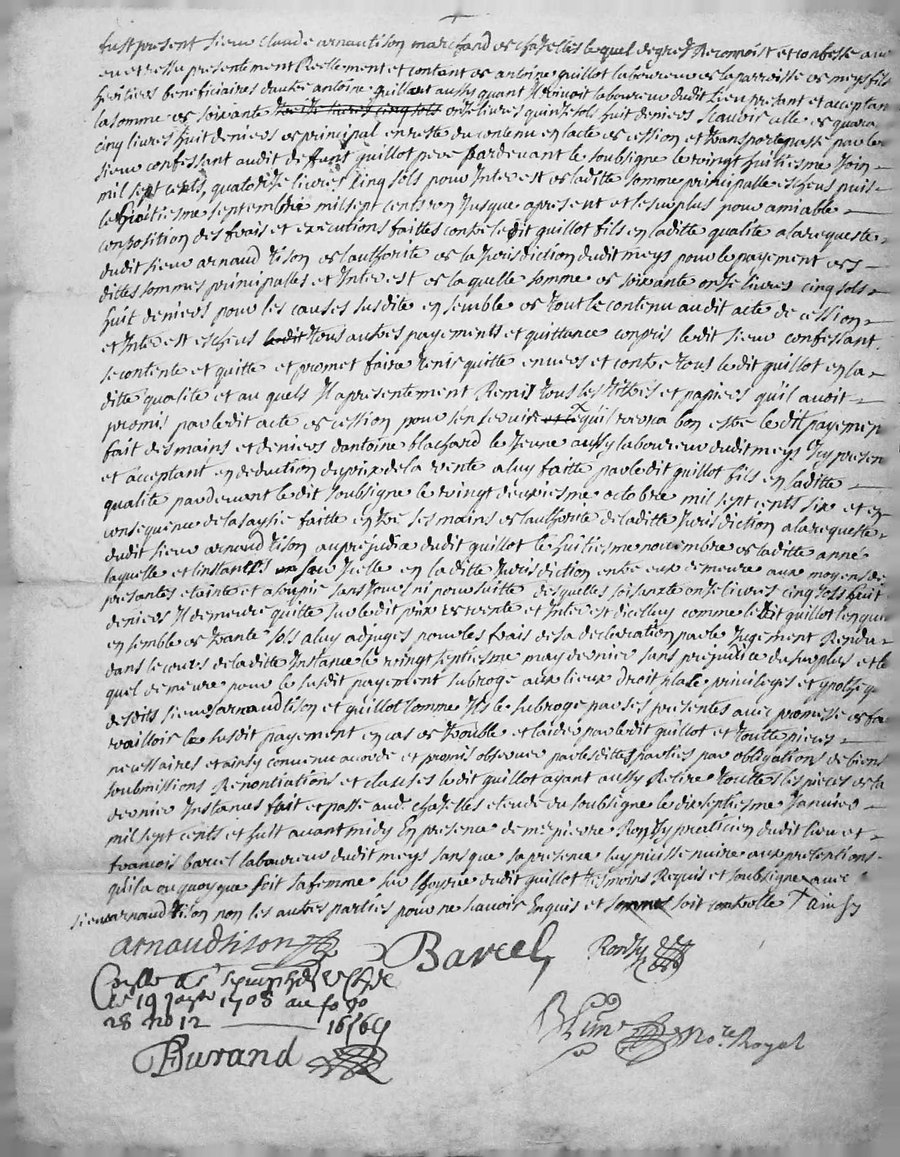 fust present sieur claude arnaud tison marchand de chazelles lequel de gre a Reconnoist et confesse avoir
eu et ressu presentement Reellement et contant de antoine guillot laboureur de la parroisse de meys fils
heritiers beneficiaires dautre antoine guillot aussy quant il vivoit laboureur dudit lieu present et acceptan
la somme de soixante onze livres quinze sols huit deniers scauoir celle de quara
cinq livres huit deniers de principal en reste du contenu en lacte de cession et transport passe par le
sieur confessant audit defunt guillot pere pardevant le soubsigne le vingt huitiesme Join
mil sept cents, quatorze livres cinq sols pour Interest de laditte somme principalle escheus puis
le huitiesme septembre mil sept cents un Jusque apresent et le surplus pour amiable
composition des frais et executions faittes contre ledit guillot fils en laditte qualite a la requeste
dudit sieur arnaud tison de lauthorite de la Jurisdiction dudit meys pour le payement des
dittes sommes principalles et Interest de laquelle somme de soixante onze livres cinq sols
huit deniers pour les causes susdite ensemble de tout le contenu audit acte de cession
et Interest escheus tous autres payements et quittance compris ledit sieur confessant
se contente et quitte et promet faire tenir quitte envers et contre tous ledit guillot en la
ditte qualite et au quels Il a presentement Remis tous les tiltres et papiers qu'il avoit
promis par ledit acte de cession pour sen servir qui verra bon estre ledit payemen
fait des mains et deniers dantoine blachard le Jeune aussy laboureur dudit meys Icy presen
et acceptant en deduction du prix de la vente a luy faitte par ledit guillot fils en laditte
qualite pardevant ledit soubsigne le vingt deuxiesme octobre mil sept cents six et en
consequence de la saysie faitte entre ses mains de lauthorite de laditte Jurisdiction a la requeste
dudit sieur arnaud tison au prejudice dudit guillot le huitiesme novembre de laditte anne
laquelle et linstance Icelle en laditte Jurisdiction entre eux demeure aux moyens des
presantes etainte et asoupie sans tous ni poursuitte desquelles soixante onze livres cinq sols huit
deniers Il demeure quitte sur ledit prix de vente et Interest dicelluy comme ledit guillot len quit
ensemble de trante sols a luy adjuges pour les frais de sa declaration par le Jugement Rendu
dans le cours de laditte Instance le vingt septiesme may dernier sans prejudice du surplus et le
quel demeure pour le susdit payement subroge aux lieux droit place privileges et ypotheq
desdits sieurs arnaud tison et guillot comme Ils le subroge par ses presentes avec promesse de fa
vailloir le susdit payement en cas de trouble et laider par ledit guillot et toutte pieces
necessaires et ainsy convenu acorde et promis observer par lesdittes parties par obligations de biens
soubmissions Renontiations et clauses ledit guillot ayant aussy Retire touttes les pieces de la
derniere Instance fait et passe aud. chazelles estude du soubsigne le dix septiesme Janvier
mil sept cents et huit avant midy En presence de me pierre Ronzy praticien dudit lieu et
francois barcel laboureur dudit meys sans que sa presence luy puisse nuire aux pretentions
quil a ou quoy que soit sa femme sur lhoyrie dudit guillot tesmoins Requis et soubsigne avec
sieur arnaud tison non les autres parties pour ne scavoir Enquis et sommes soit controlle + ainsy
arnaudtison Barcel Ronzy
Conlle a
le 19 1708 au fo 90
28 no 12 16s 6d
Durand
no.re Royal